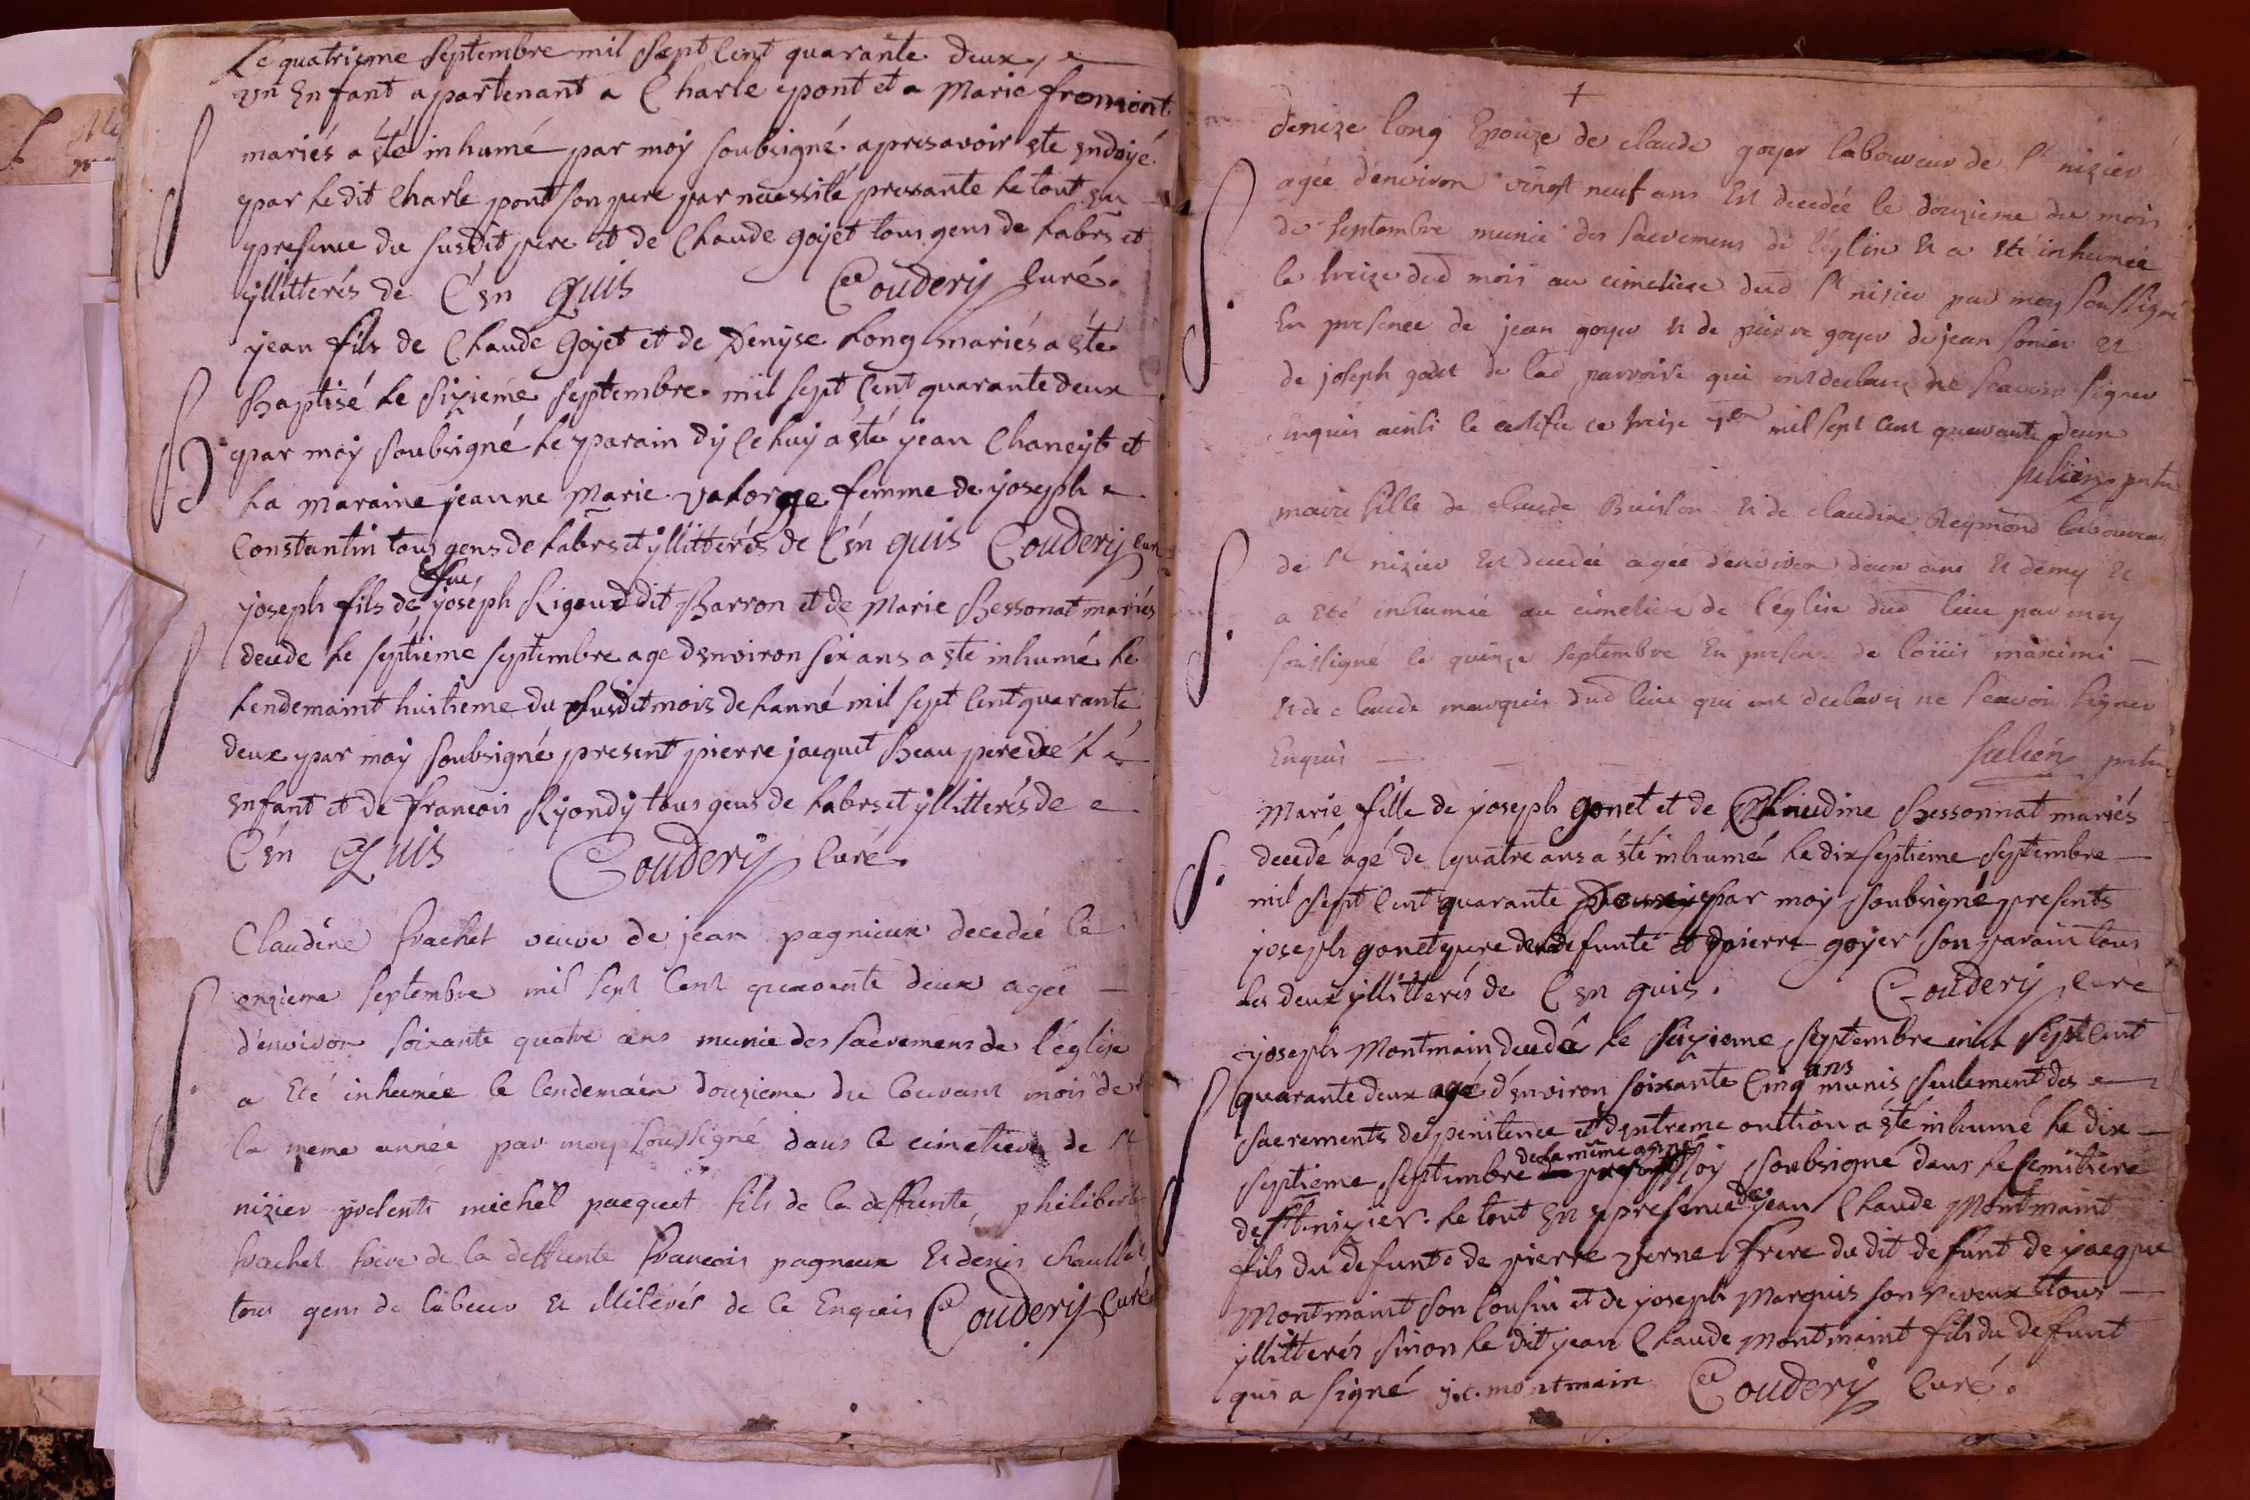 Le quatrieme septembre mil sept cent quarante deux
un enfant apartenant a Charle pont et a Marie fromont
mariés a été inhumé par moy soubsigné apres avoir ete endoyé
par le dit Charle pont son pere par necessité pressante le tout en
presence du susdit pere et de Claude gojet tous gens de labrs et
yllitterés de C'en quis Couderij Curé.
jean fils de Claude Gojet et de Denyse Long mariés a été
Baptisé le sizieme septembre mil sept cent quarante deux
par moy soubsigné le parain dy celuy a été jean Chaneyt et
la maraine jeanne Marie Valorge femme de joseph
Constantin tous gens de labrs et yllitterés de C'en quis Couderij Cure
feu
joseph fils de joseph Rigaud dit Barron et de Marie Bessonat mariés
decede le septieme septembre age denviron six ans a ete inhumé le
lendemaint huitieme du susdit mois de lanné mil sept cent quarante
deux par moy soubsigné present pierre jacquet Beau pere de l
enfant et de francois Ryondy tous gens de labrs et yllitterés de
C'en Quis Couderij Curé.
Claudine frachet veuve de jean pagnieux decedée le
onzieme septembre mil sept cent quarante deux agée
d'environ soixante quatre ans munie des sacremens de l'église
a été inhumée le lendemain douzieme du courant mois de
la meme année par moy soussigné dans le cimetiere de st
nizier presents michel pacquet fils de la deffunte, philibert
frachet frere de la deffunte francois pagneux et denis
tous gens de labeur et illiterés de ce Enquis Couderij Curé
denize long Epouze de claude goyer laboureur de st nizier
agée d'environ vingt neuf ans est decedée le douzieme du mois
de septembre munie des sacremens de l'église et a été inhumée
le treize dud mois au cimetiere dud st nizier par moy soussigné
En presence de jean goyer et de pierre goyer de jean et
de joseph de lad parroisse qui ont declaré ne scavoir signer
enquis ainsi le certifie ce treize 7bre mil sept cent quarante deux
Julien
marie fille de claude Buisson et de claudine Reymond laboureur
de st nizier est decedée agée d'environ deux ans et demy et
a été inhumée au cimetiere de l'église dud lieu par moy
soussigné le quinze septembre En presence de loüis
et de claude marquis dud lieu qui ont declarez ne scavoir signer
Enquis Julien
Marie fille de joseph gonet et de Claudine Bessonnat mariés
decedé agé de quatre ans a été inhumé le dixseptieme septembre
mil sept cent quarante Deux par moy soubsigné presents
joseph gonet pere de la defunte et pierre goyer son parain tous
les deux yllitterés de C'en quis. Couderij Cure
joseph Montmain decedé le sizieme septembre mil sept cent
quarante deux agé d'environ soixante cinq ans munis seulement des
sacrements de penitence et d'extreme onction a été inhumé le dix
septieme septembre de la meme année par moy soubsigné dans le cemitiere
de st nizier. le tout en presence de jean Claude Montmaint
fils du defunt de pierre verne frere du dit defunt de jacque
Montmaint son cousin et de joseph Marquis son neveux tous
yllitterés sinon le dit jean Claude Montmaint fils du defunt
qui a signé j.c. montmain Couderij Curé.